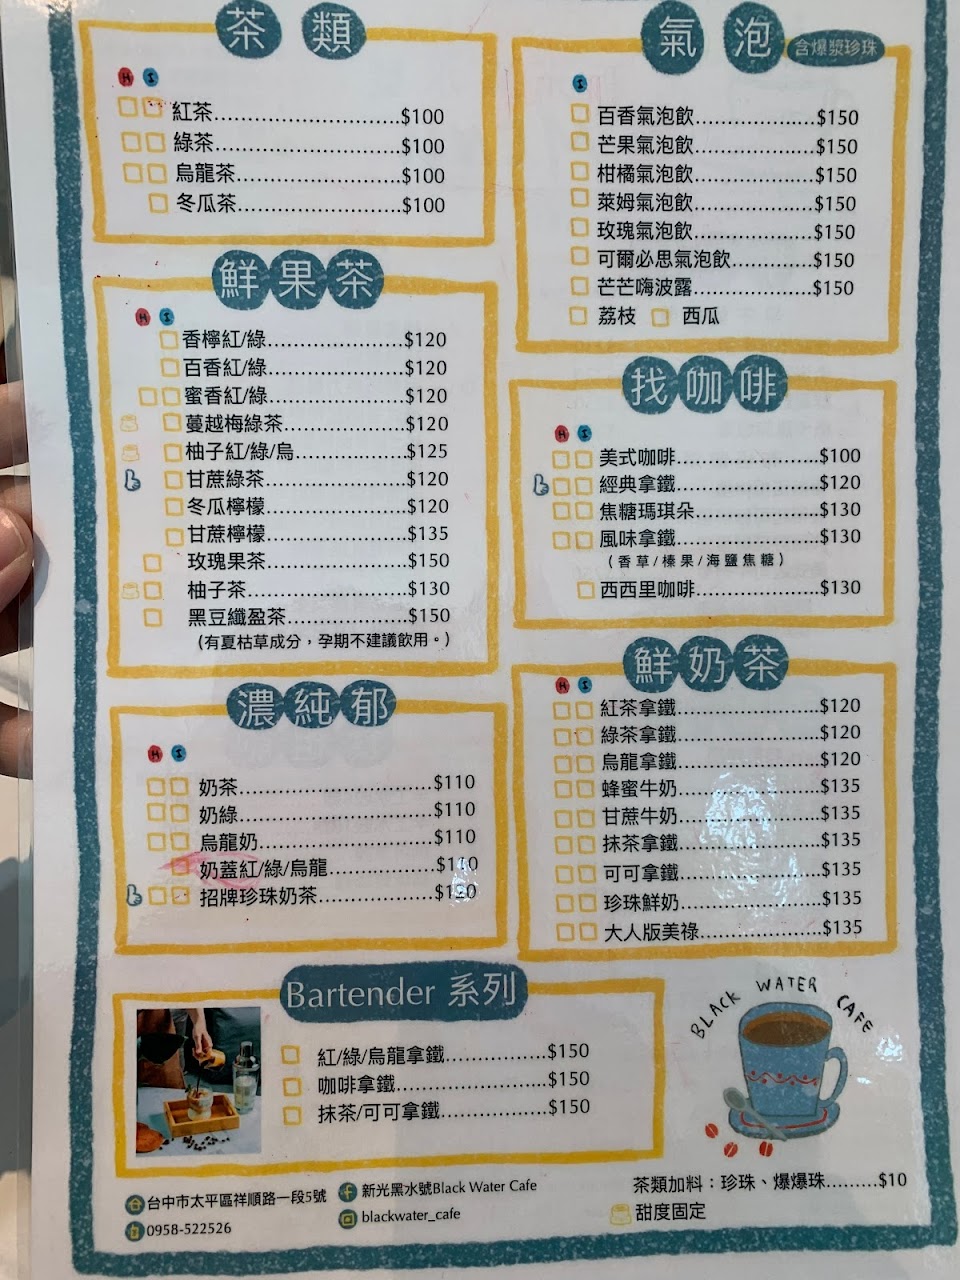 茶類
H I
紅茶..............................$100
綠茶..............................$100
烏龍茶..........................$100
冬瓜茶..........................$100
鮮果茶
H I
香檸紅/綠......................$120
百香紅/綠......................$120
蜜香紅/綠......................$120
蔓越梅綠茶...................$120
柚子紅/綠/烏..................$125
甘蔗綠茶.......................$120
冬瓜檸檬.......................$120
甘蔗檸檬.......................$135
玫瑰果茶.......................$150
柚子茶..........................$130
黑豆纖盈茶...................$150
(有夏枯草成分，孕期不建議飲用。)
濃純郁
H I
奶茶...............................$110
奶綠...............................$110
烏龍奶............................$110
奶蓋紅/綠/烏龍.................$110
招牌珍珠奶茶..................$120
氣泡 含爆漿珍珠
I
百香氣泡飲....................$150
芒果氣泡飲....................$150
柑橘氣泡飲....................$150
萊姆氣泡飲....................$150
玫瑰氣泡飲....................$150
可爾必思氣泡飲.............$150
芒芒嗨波露....................$150
荔枝 西瓜
找咖啡
H I
美式咖啡.......................$100
經典拿鐵.......................$120
焦糖瑪琪朵....................$130
風味拿鐵.......................$130
(香草/榛果/海鹽焦糖)
西西里咖啡....................$130
鮮奶茶
H I
紅茶拿鐵.......................$120
綠茶拿鐵.......................$120
烏龍拿鐵.......................$120
蜂蜜牛奶.......................$135
甘蔗牛奶.......................$135
抹茶拿鐵.......................$135
可可拿鐵.......................$135
珍珠鮮奶.......................$135
大人版美祿....................$135
Bartender 系列
紅/綠/烏龍拿鐵................$150
咖啡拿鐵........................$150
抹茶/可可拿鐵.................$150
BLACK WATER CAFE
台中市太平區祥順路一段5號
0958-522526
新光黑水號Black Water Cafe
blackwater_cafe
茶類加料：珍珠、爆爆珠.........$10
甜度固定